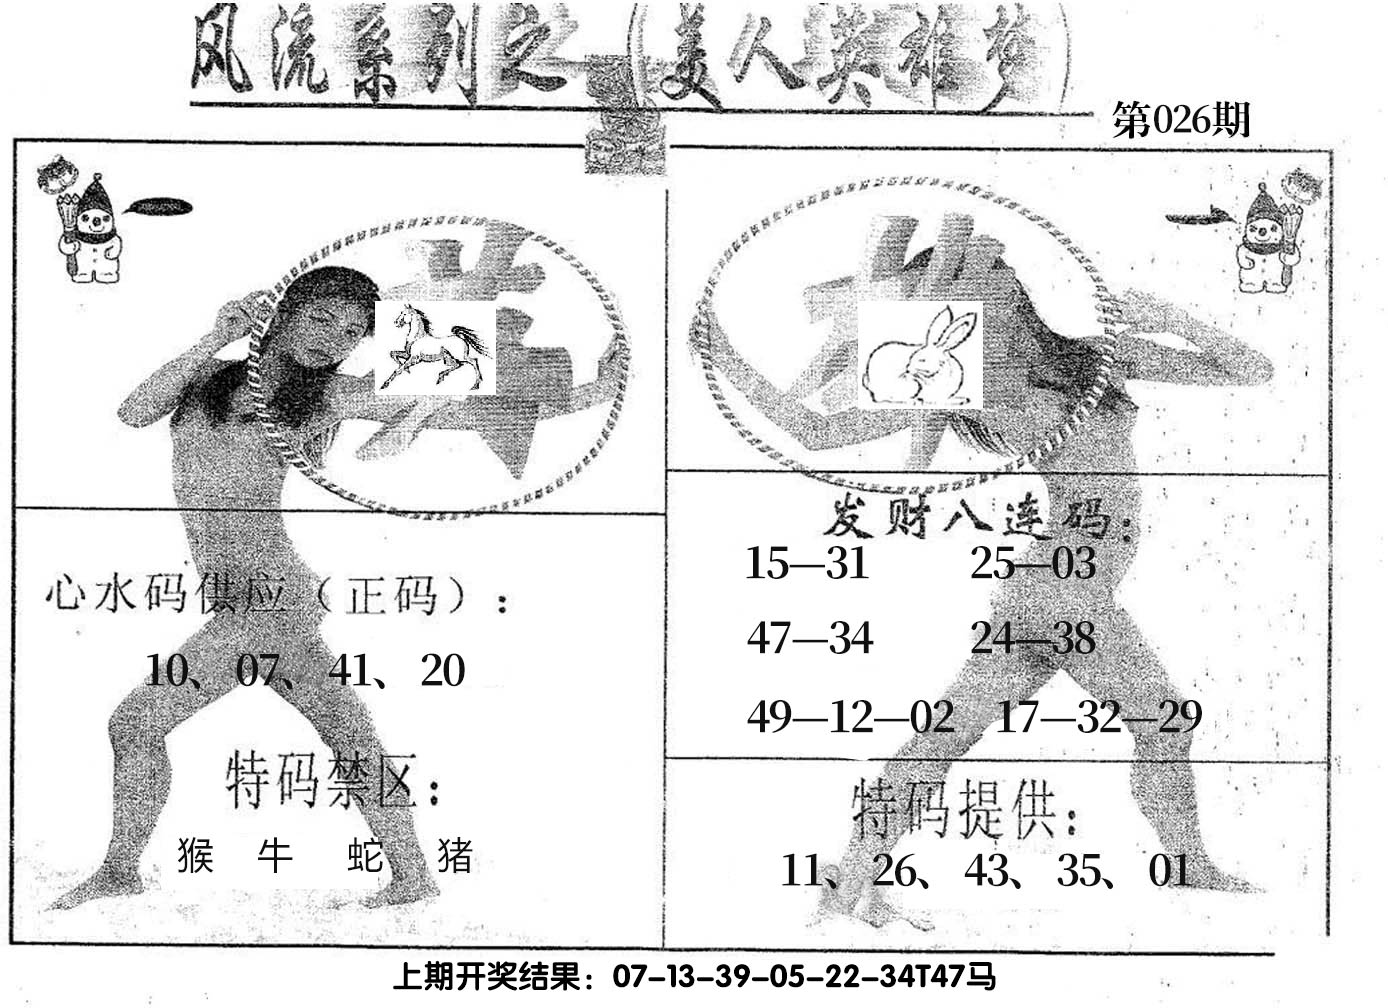 风流系列之（美人英雄梦）
第026期
心水码供应（正码）：
10、07、41、20
特码禁区：
猴 牛 蛇 猪
发财八连码：
15—31 25—03
47—34 24—38
49—12—02 17—32—29
特码提供：
11、26、43、35、01
上期开奖结果：07-13-39-05-22-34T47马